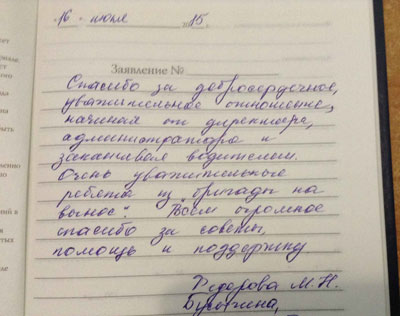 16 июля 15.
Заявление №
Спасибо за добросердечное,
уважительное отношение,
начиная от директора,
администратора и
заканчивая водителем.
Очень уважительные
ребята из "бригады на
вынос". Всем огромное
спасибо за советы,
помощь и поддержку
Федорова М. Н.